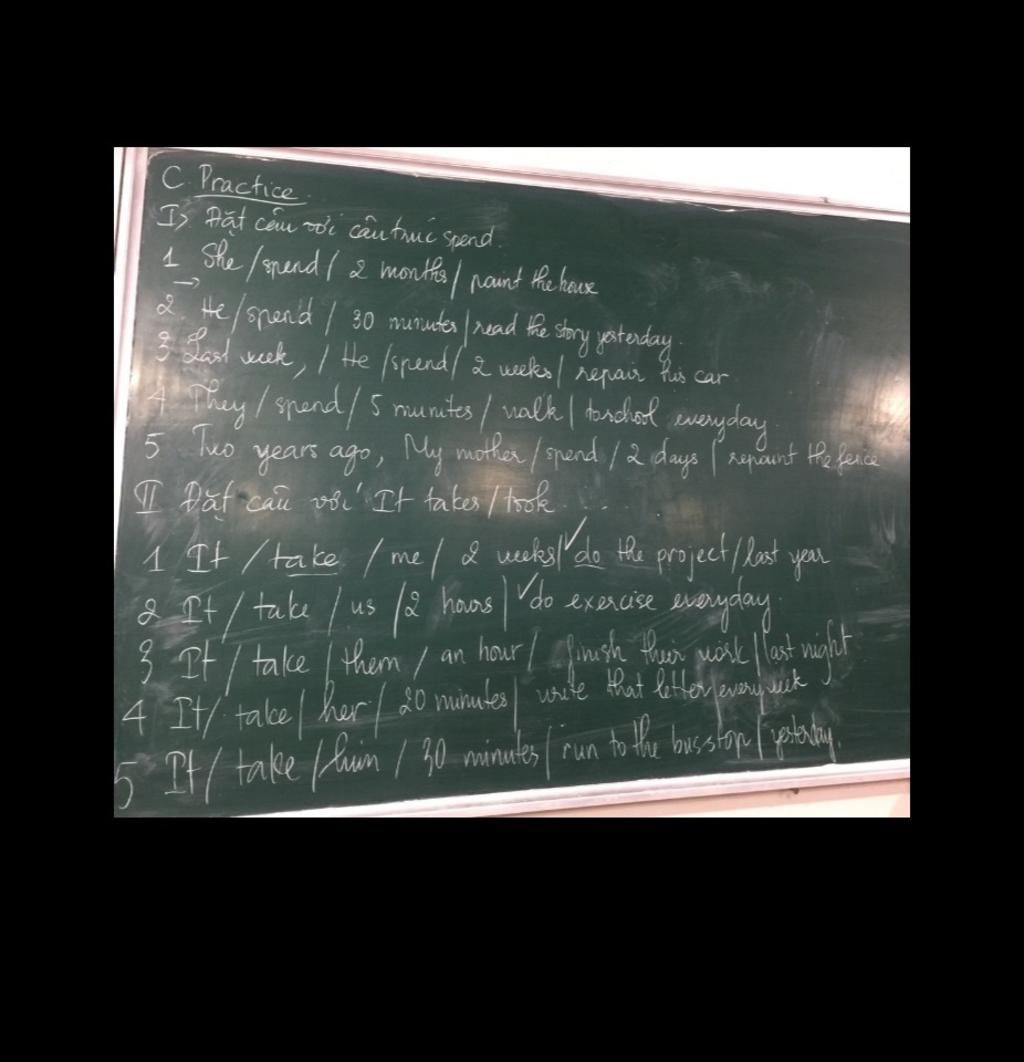 C. Practice.
I> Đặt câu với cấu trúc spend.
1 She / spend / 2 months / paint the house
→
2. He / spend / 30 minutes / read the story yesterday.
3 Last week, / He / spend / 2 weeks / repair his car
4 They / spend / 5 munites / walk / to school everyday.
5 Two years ago, My mother / spend / 2 days / repaint the fence
II Đặt câu với It takes / took....
1 It / take / me / 2 weeks / do the project / last year
2 It / take / us / 2 hours / do exercise everyday.
3 It / take / them / an hour / finish their work / last night
4 It / take / her / 20 minutes / write that letter every week
5 It / take / him / 30 minutes / run to the bus stop / yesterday.